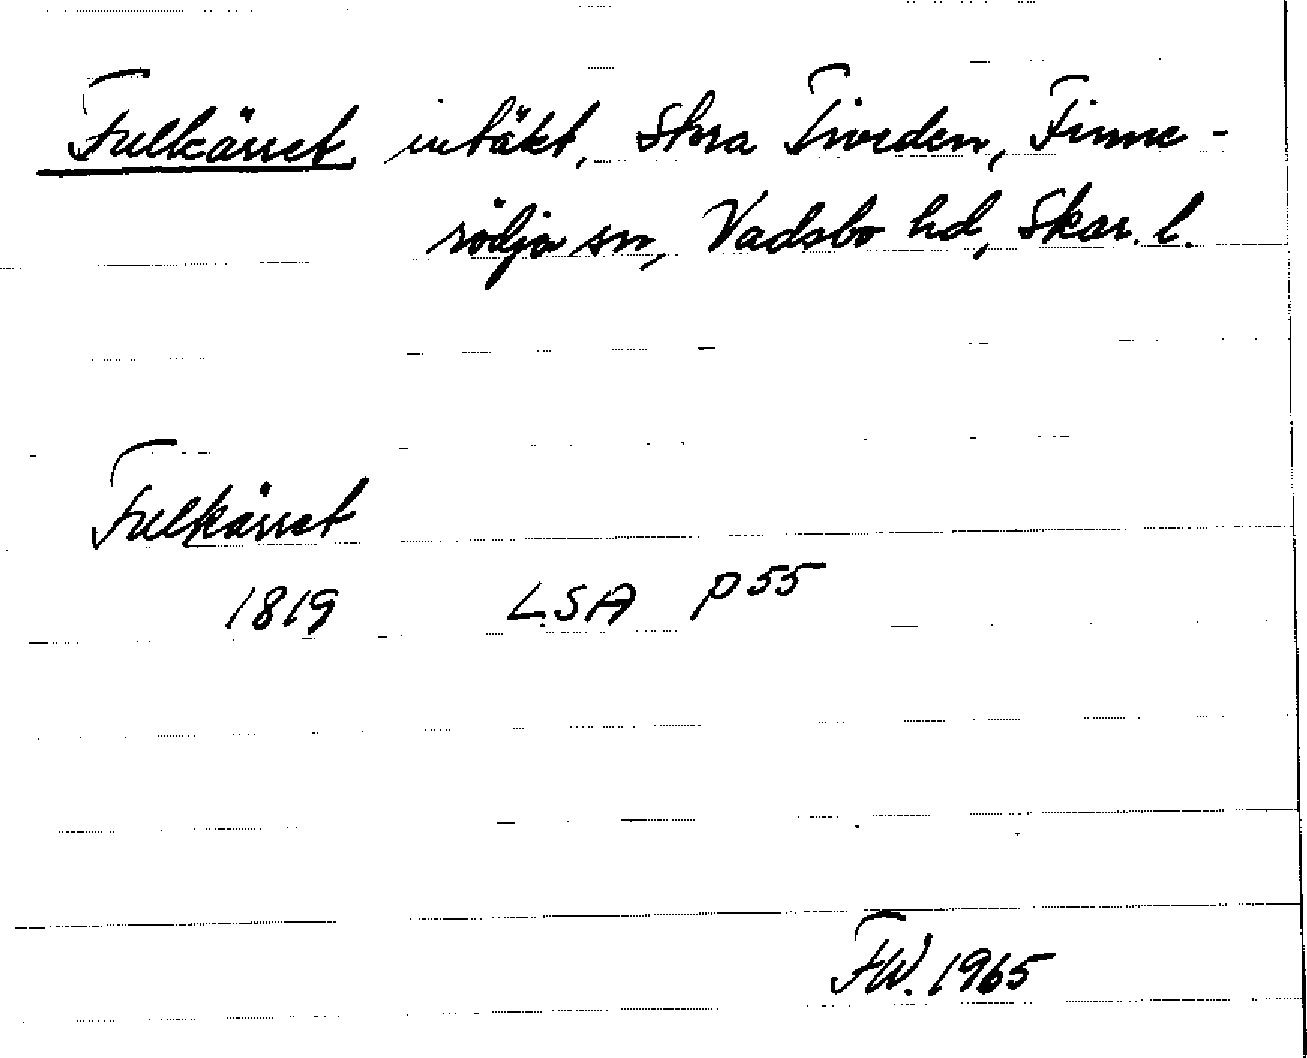 Fulkärret, intäkt, Stora Tiveden, Finne-
rödja sn, Vadsbo hd, Skar. l.
Fulkärret
1819 LSA P55
FW. 1965